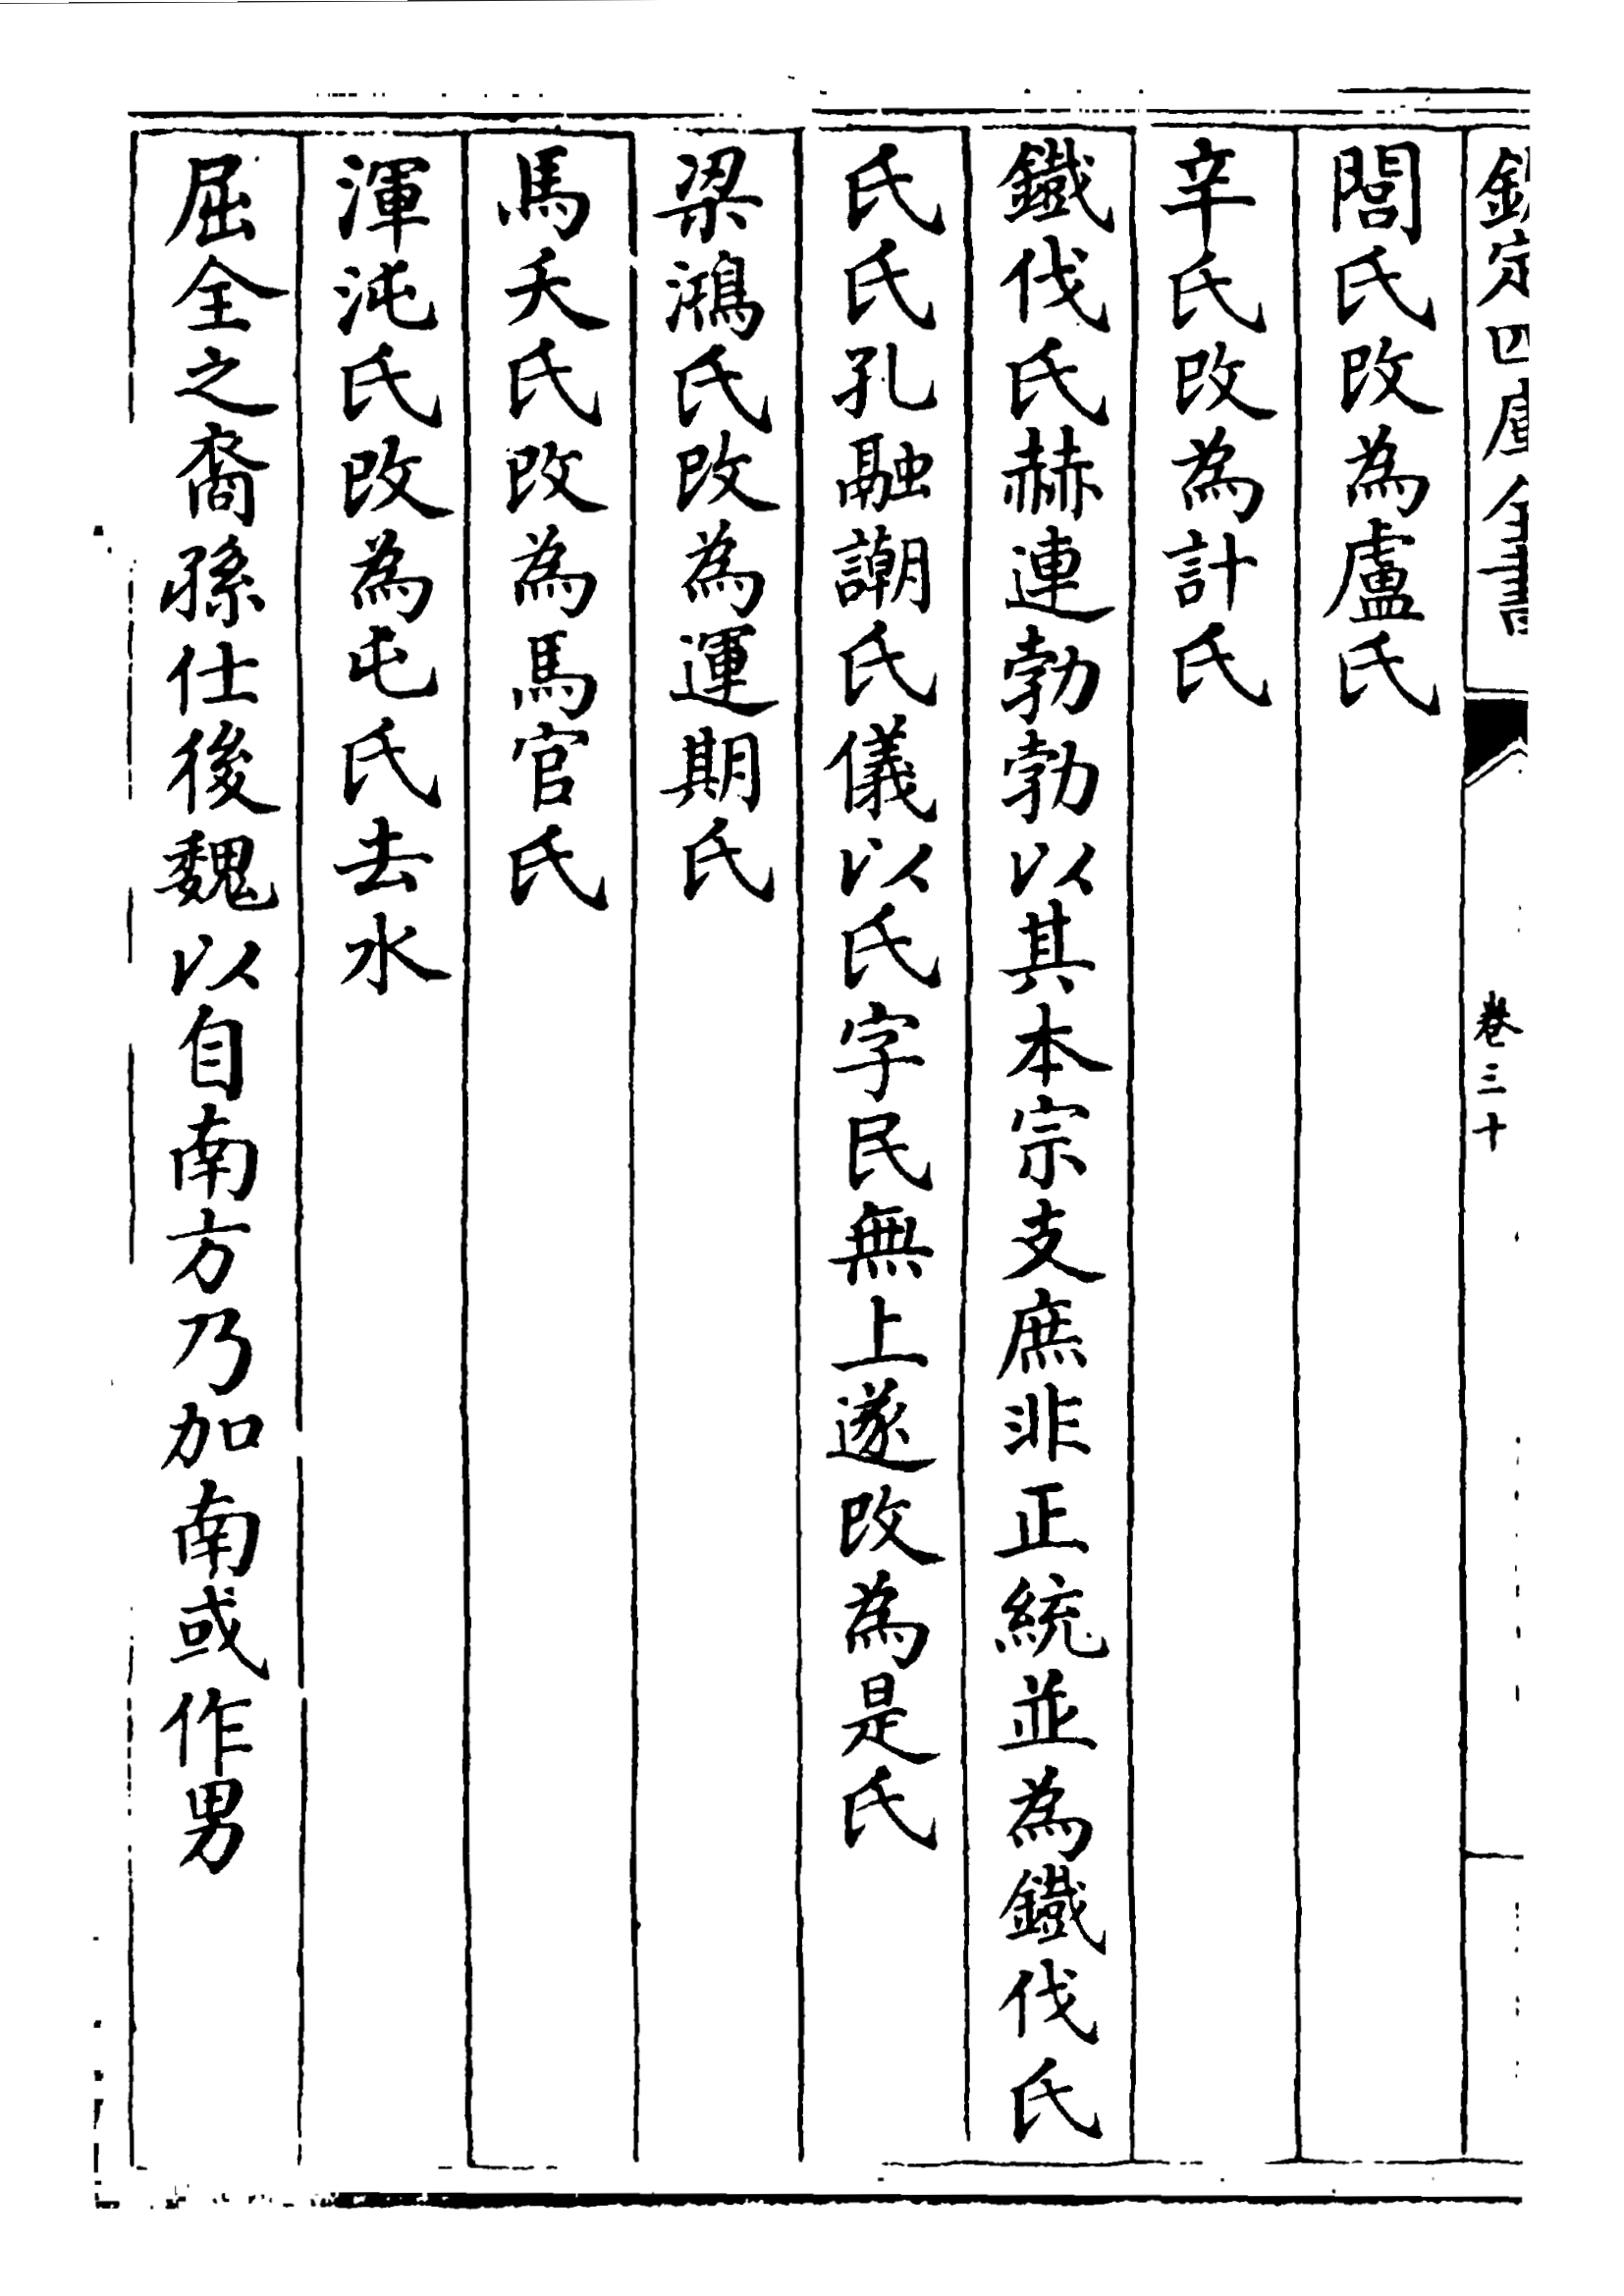 欽定四庫全書
卷三十
閻氏改為盧氏
辛氏改為計氏
鐵伐氏赫連勃勃以其本宗支庶非正統並為鐵伐氏
氏氏孔融謿氏儀以氏字民無上遂改為是氏
梁鴻氏改為運期氏
馬矢氏改為馬官氏
渾沌氏改為屯氏去水
屈全之裔孫仕後魏以自南方乃加南或作男